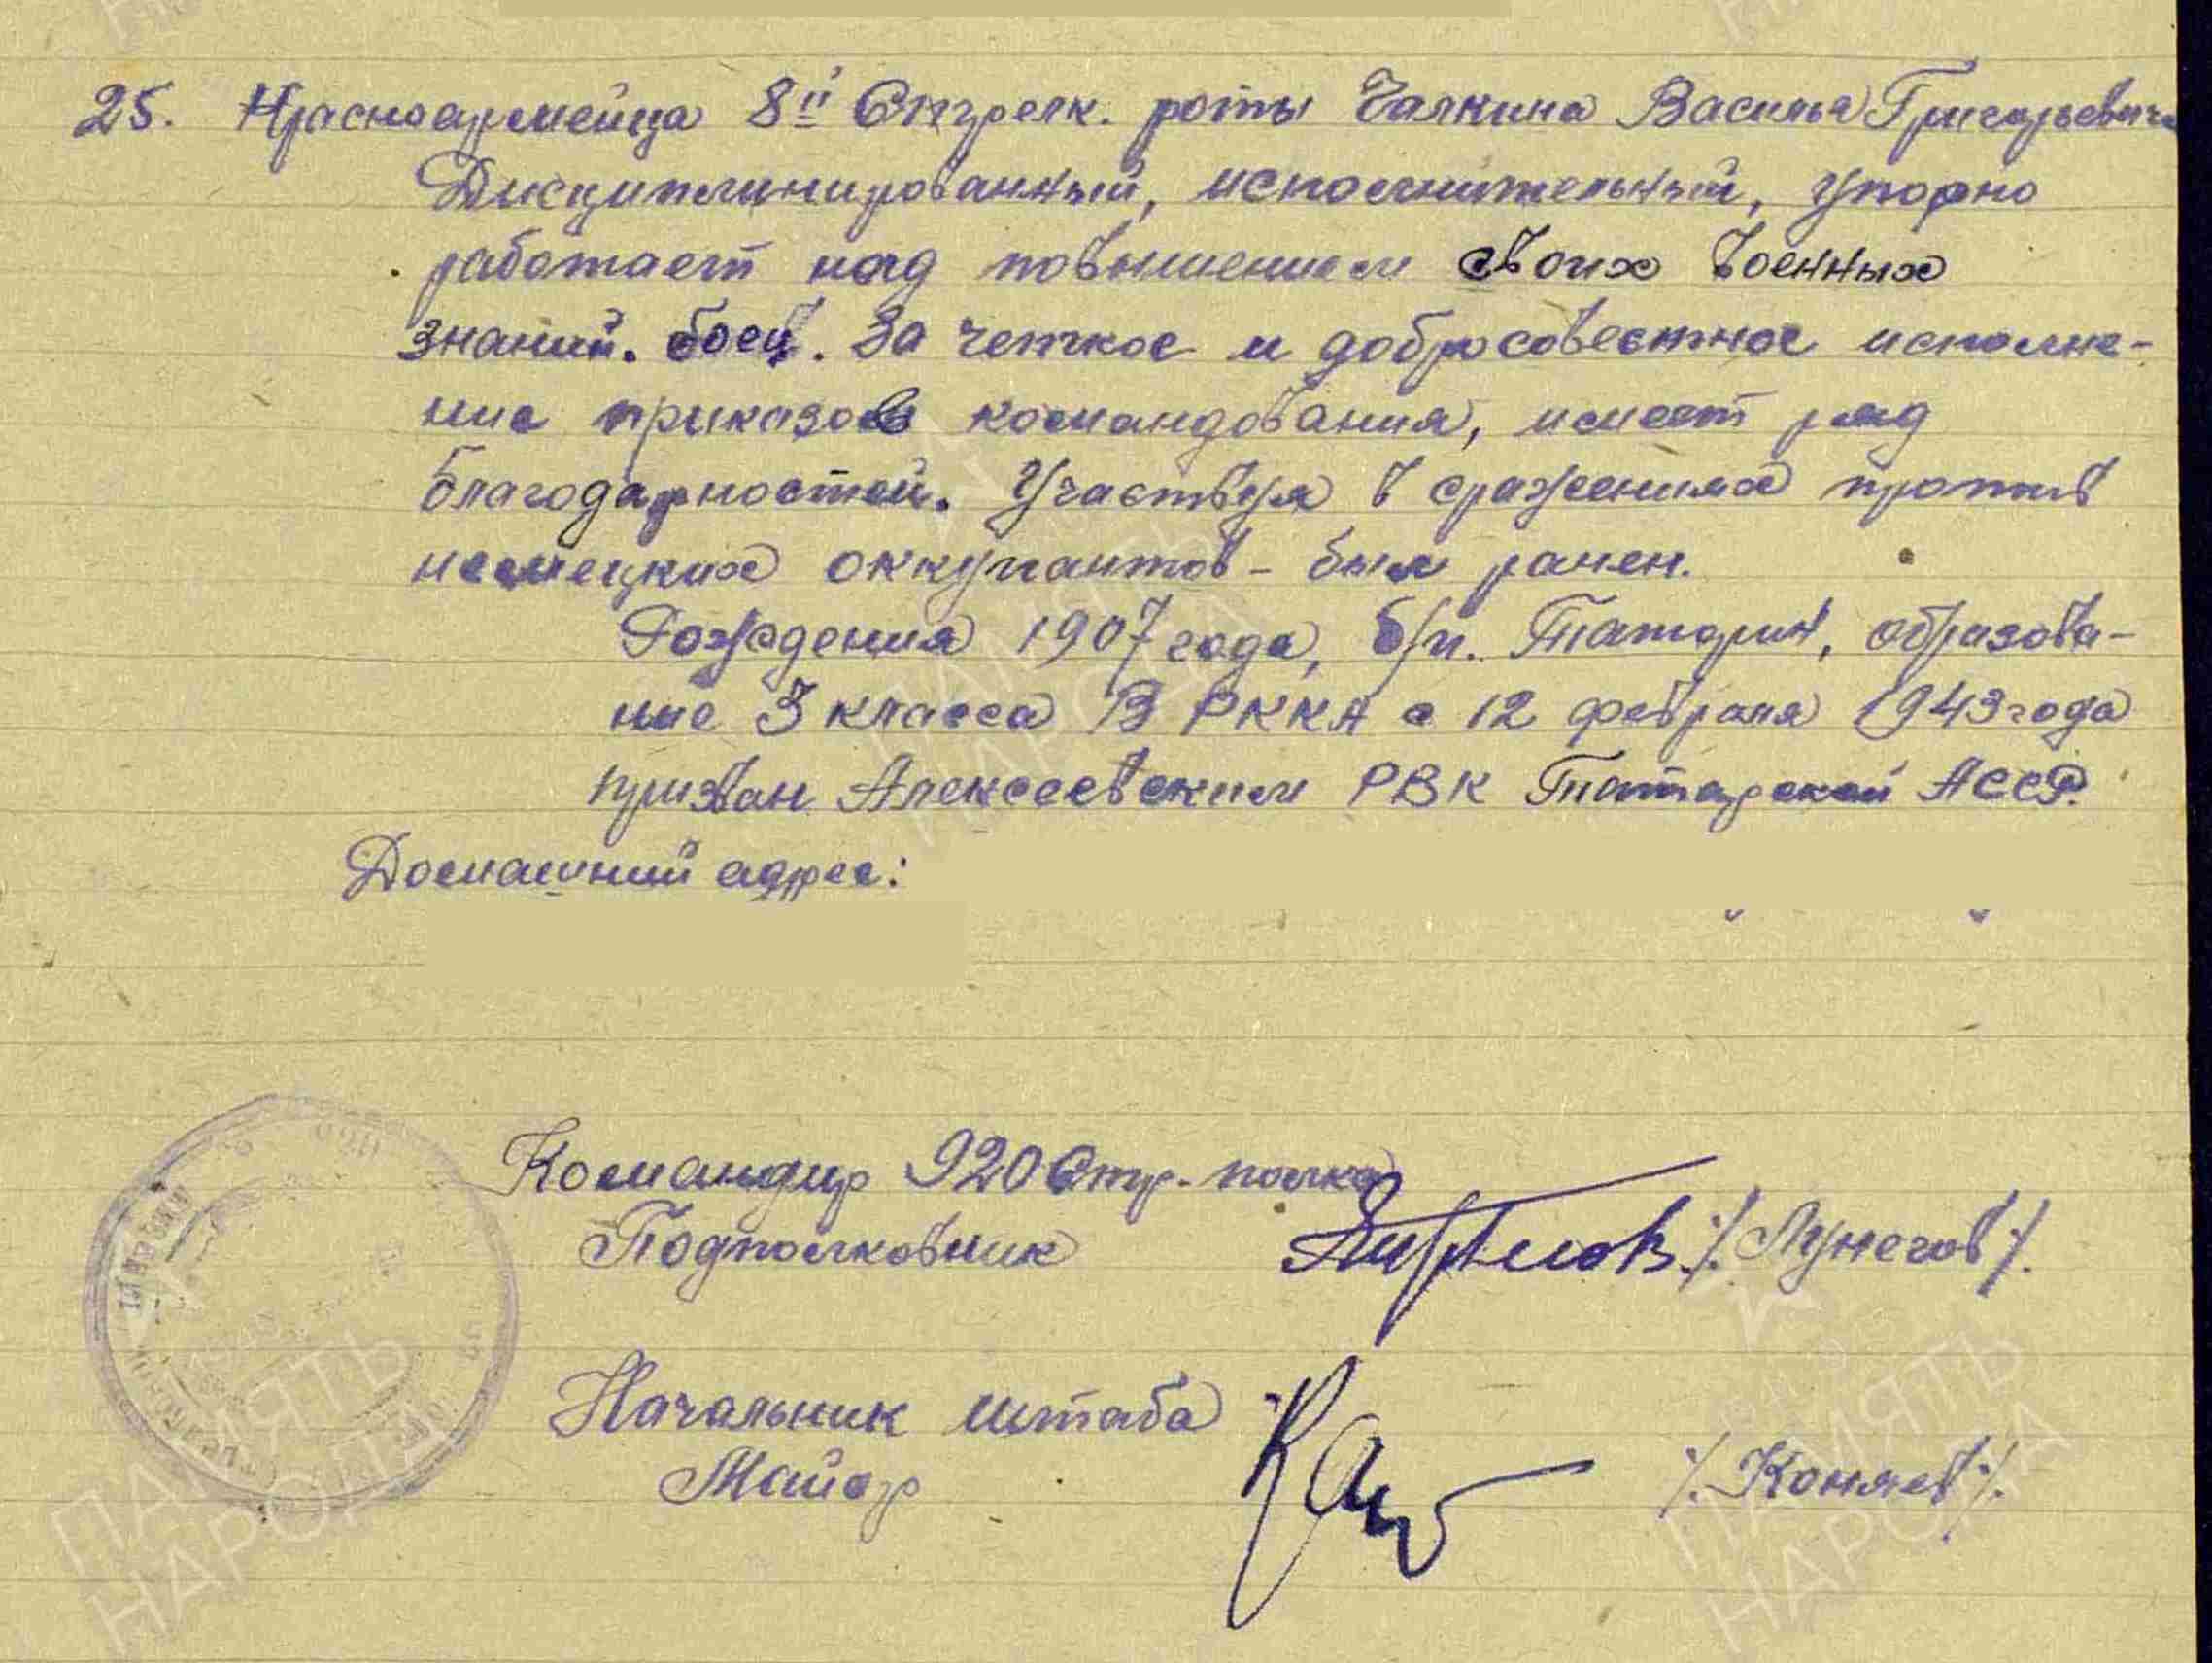 25. Красноармейца 8й Стрелк. роты Галкина Василья Григорьевича
Дисциплинированный, исполнительный, упорно
работает над повышением своих военных
знаний. боец. За четкое и добросовестное исполне-
ние приказов командования, имеет ряд
благодарностей. Участвуя в сражениях против
немецких оккупантов - был ранен.
Рождения 1907 года, б/п. Татарин, образова-
ние 3 класса В РККА с 12 февраля 1943 года
призван Алексеевским РВК Татарской АССР.
Домашний адрес:
Командир 920 Стр. полка
Подполковник /Лунегов/.
Начальник штаба
Майор /Коняев/.
ПАМЯТЬ
НАРОДА
ПАМЯТЬ
НАРОДА
ПАМЯТЬ
НАРОДА